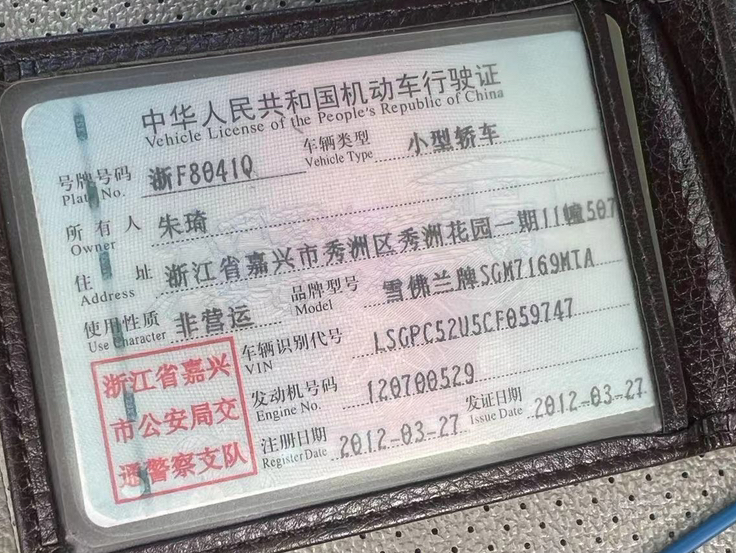 中华人民共和国机动车行驶证
Vehicle License of the People's Republic of China
号牌号码 浙F8041Q 车辆类型 小型轿车
Plate No. Vehicle Type
所有人 朱琦
Owner
住址 浙江省嘉兴市秀洲区秀洲花园一期11幢507
Address
使用性质 非营运 品牌型号 雪佛兰牌SGM7169MTA
Use Character Model
车辆识别代号 LSGPC52U5CF059747
VIN
发动机号码 120700529
Engine No.
注册日期 2012-03-27 发证日期 2012-03-27
Register Date Issue Date
浙江省嘉兴
市公安局交
通警察支队